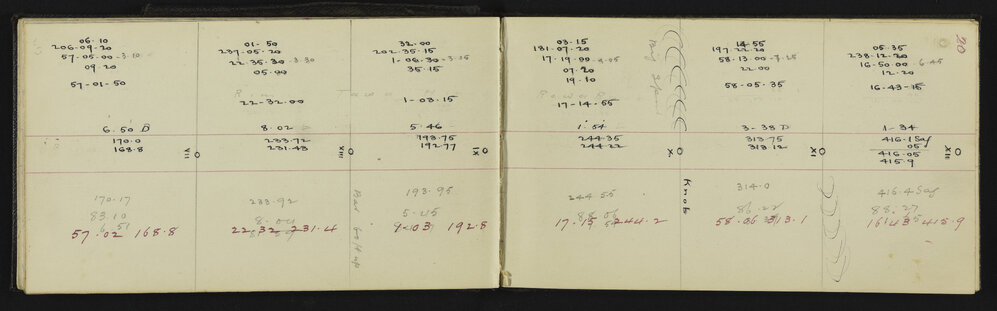 20
06.10
206-09-20
57-05-00 - 3.10
09.20
57-01-50
6.50 D
170.0
168.8
VII
170.17
83.10
6.51
57.02 168.8
01-50
237-05-20
22-35-30 - 3.30
05-00
22-32.00
8.02 D
233.72
231.43
VIII
233.92
22.32 231.4
32.00
202-35-15
1-06-30 - 3.25
35.15
1-03.15
5.46
193.75
192.77
IX
193.95
1.03 192.8
03-15
181-07-20
17-19-00 - 4.05
07.20
19.10
17-14-55
1.54
244.35
244.22
X
Knob
244.55
88.06
17.15 244.2
14.55
197-22-20
58-13-00 - 7.25
22.00
58-05.35
3-38 D
313.75
313.12
XI
314.0
86.22
58.06 313.1
05.35
238-12-20
16-50.00 - 6.45
12.20
16-43-15
1-34
416.1 Sag
05
416.05
415.9
XII
416.4 Sag
88.27
16.43 415.9